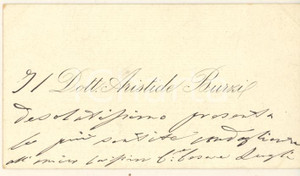 Il Dott. Aristide Buzzi
desolatissimo presenta
le più sentite condoglianze
all'amico